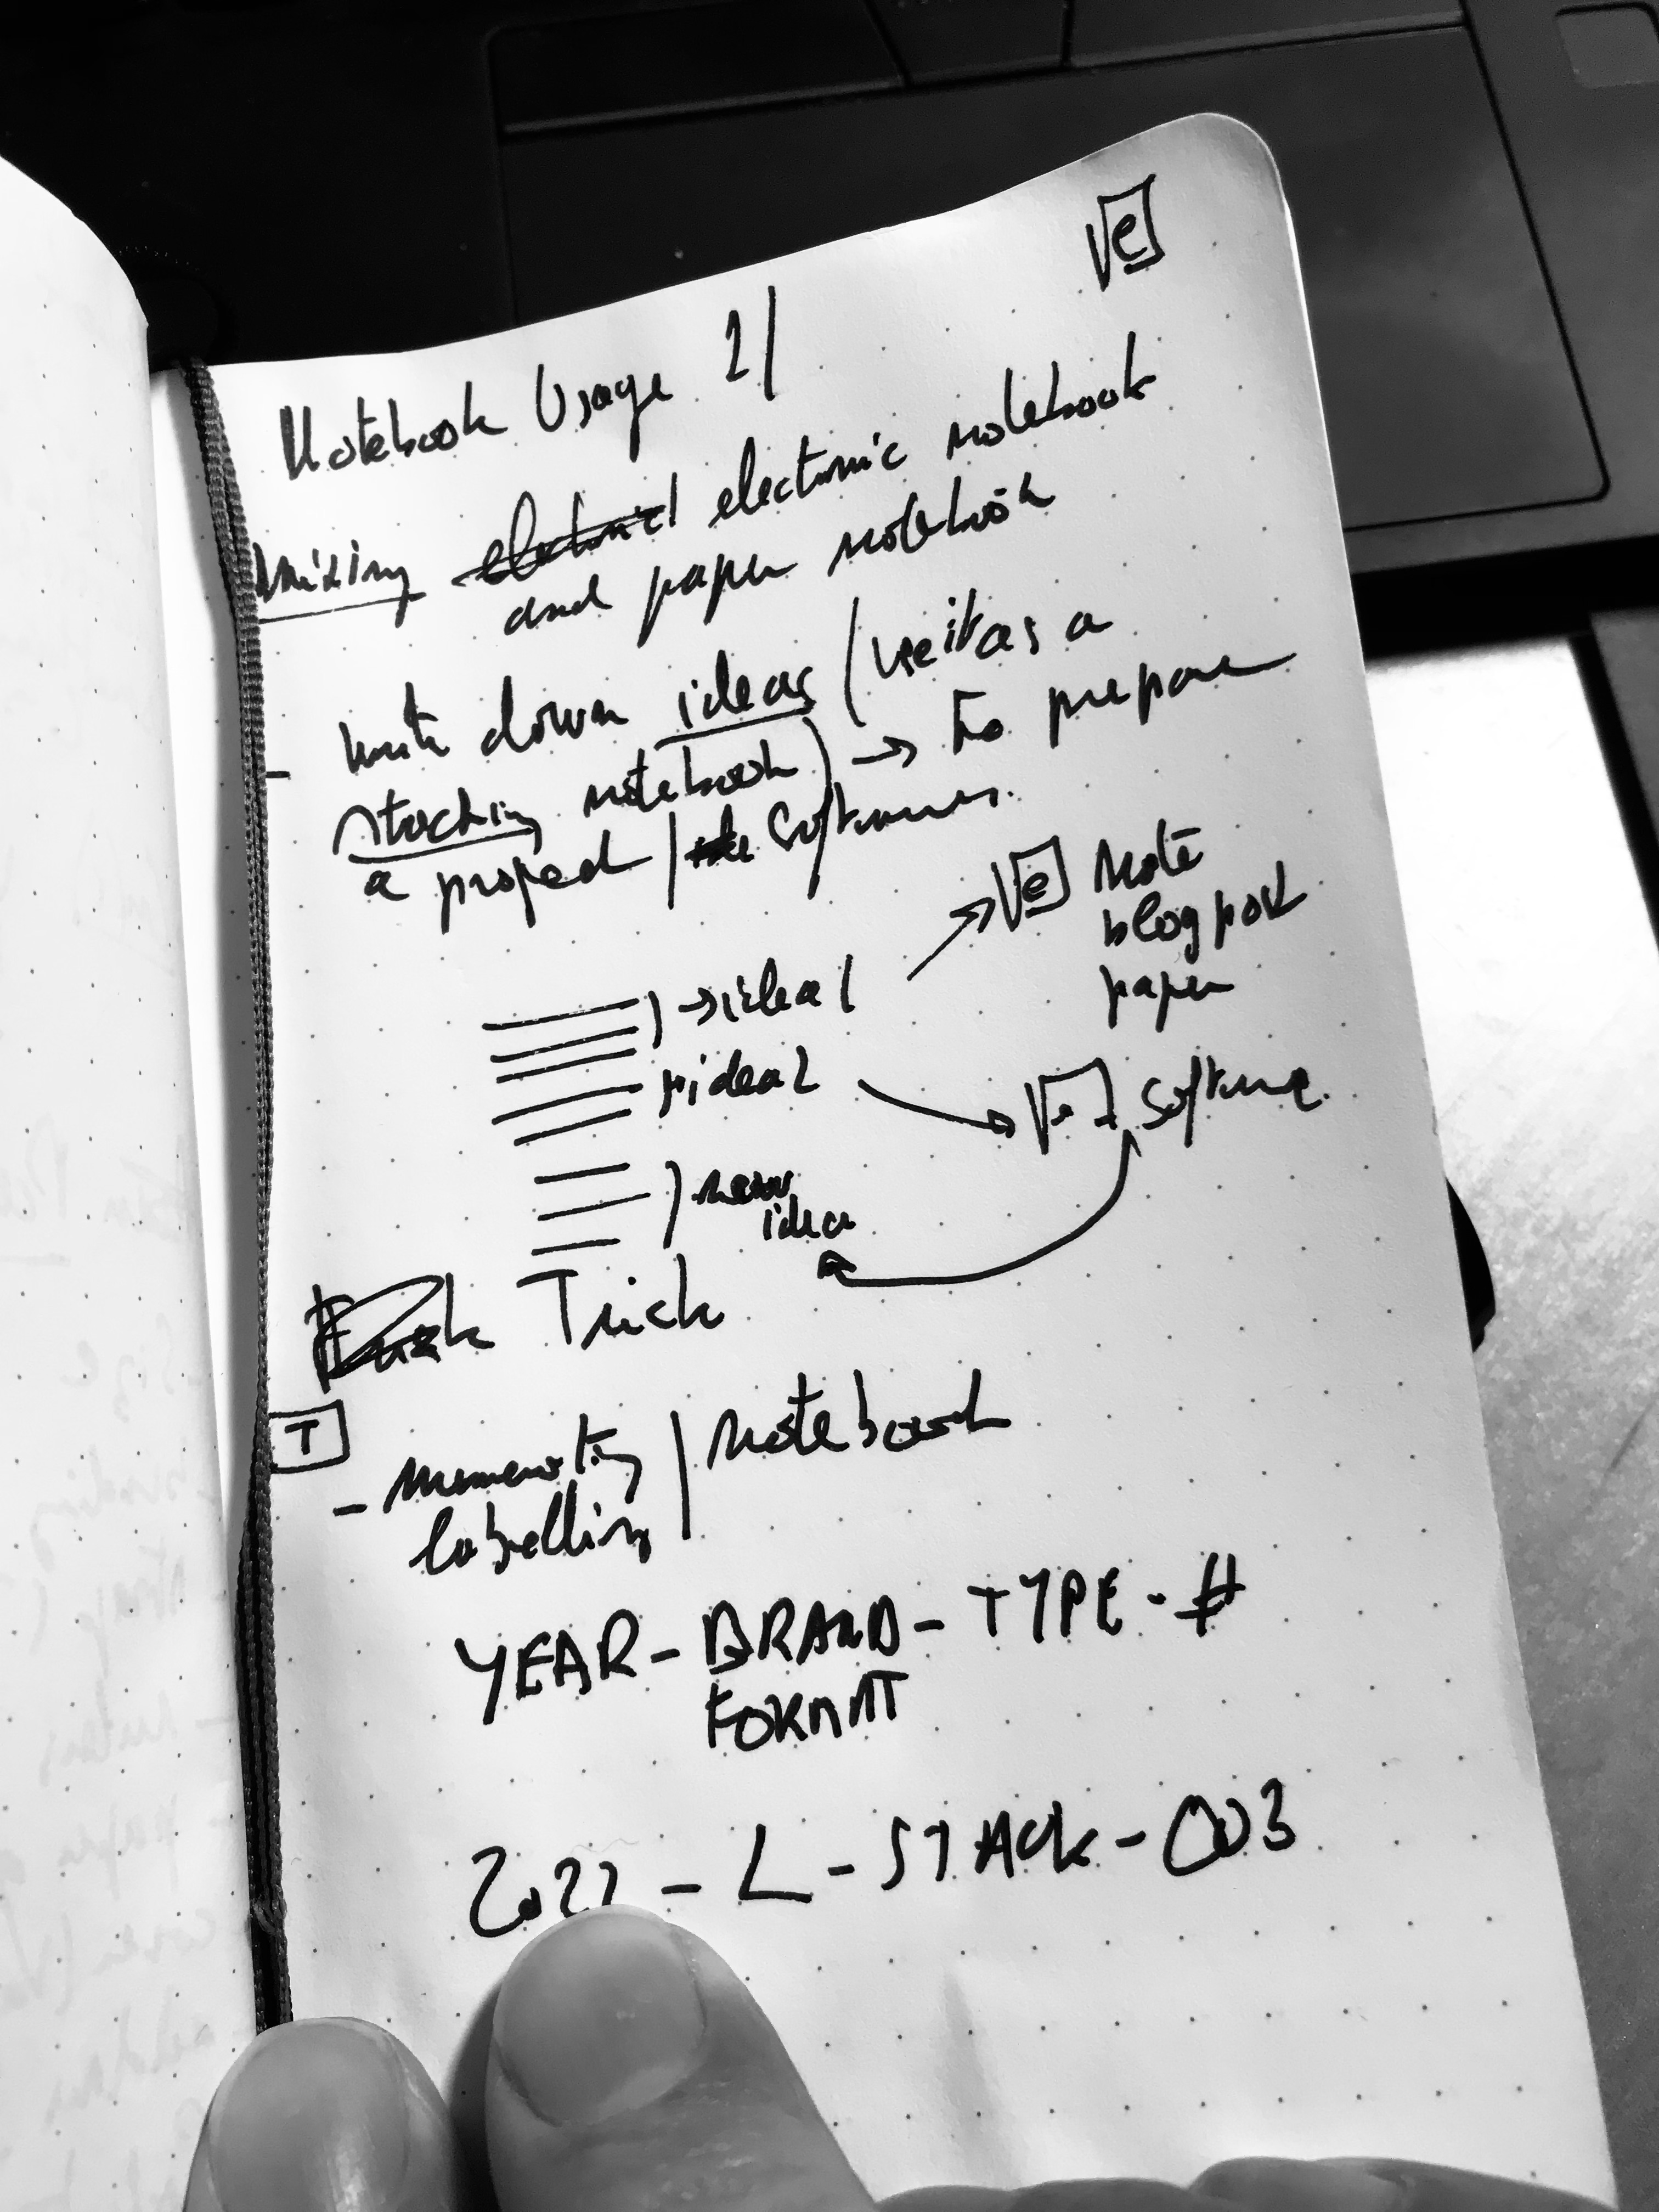 e
Notebook Usage 2/
Mixing electronic notebook
and paper notebook
- write down ideas (use it as a
stacking notebook) → to prepare
a proped / softwares.
→ idea 1
e Note
blog post
paper
idea 2
e Software
new
idea
Trick
T
- numeroting / notebook
labelling
YEAR - BRAND - TYPE - #
FORMAT
2022 - L - STACK - 003